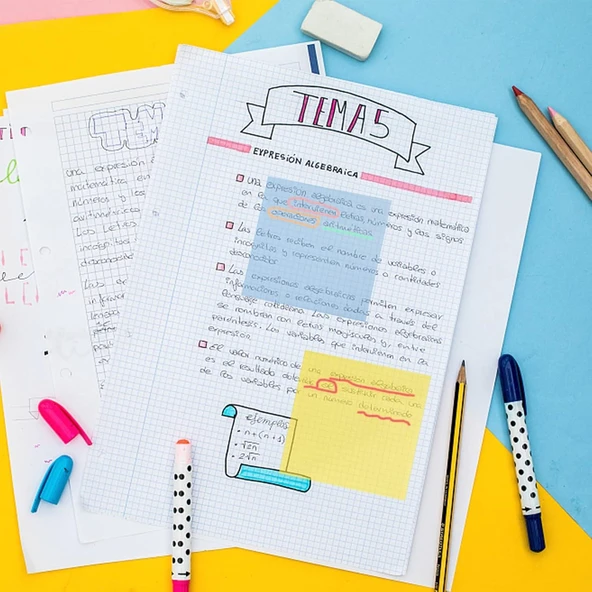 TEMA 5
EXPRESIÓN ALGEBRAICA
Una expresión algebraica es una expresión matemática
en la que intervienen letras números y los signos
de las operaciones aritméticas
Las letras reciben el nombre de variables o
incógnitas y representan números o cantidades
desconocidas
Las expresiones algebraicas permiten expresar
informaciones o relaciones dadas a través del
lenguaje cotidiano. Las expresiones algebraicas
se nombran con letras mayúsculas y, entre
paréntesis. Las variables que intervienen en la
expresión.
El valor numérico de una expresión algebraica
es el resultado de sustituir cada una
de las variables por un número determinado
ejemplos
• n+(n+1)
• √2n
• 2√n
una expresión
matemática en
números y los
aritméticas
Las letras
incógnitas
desconocidas
Las